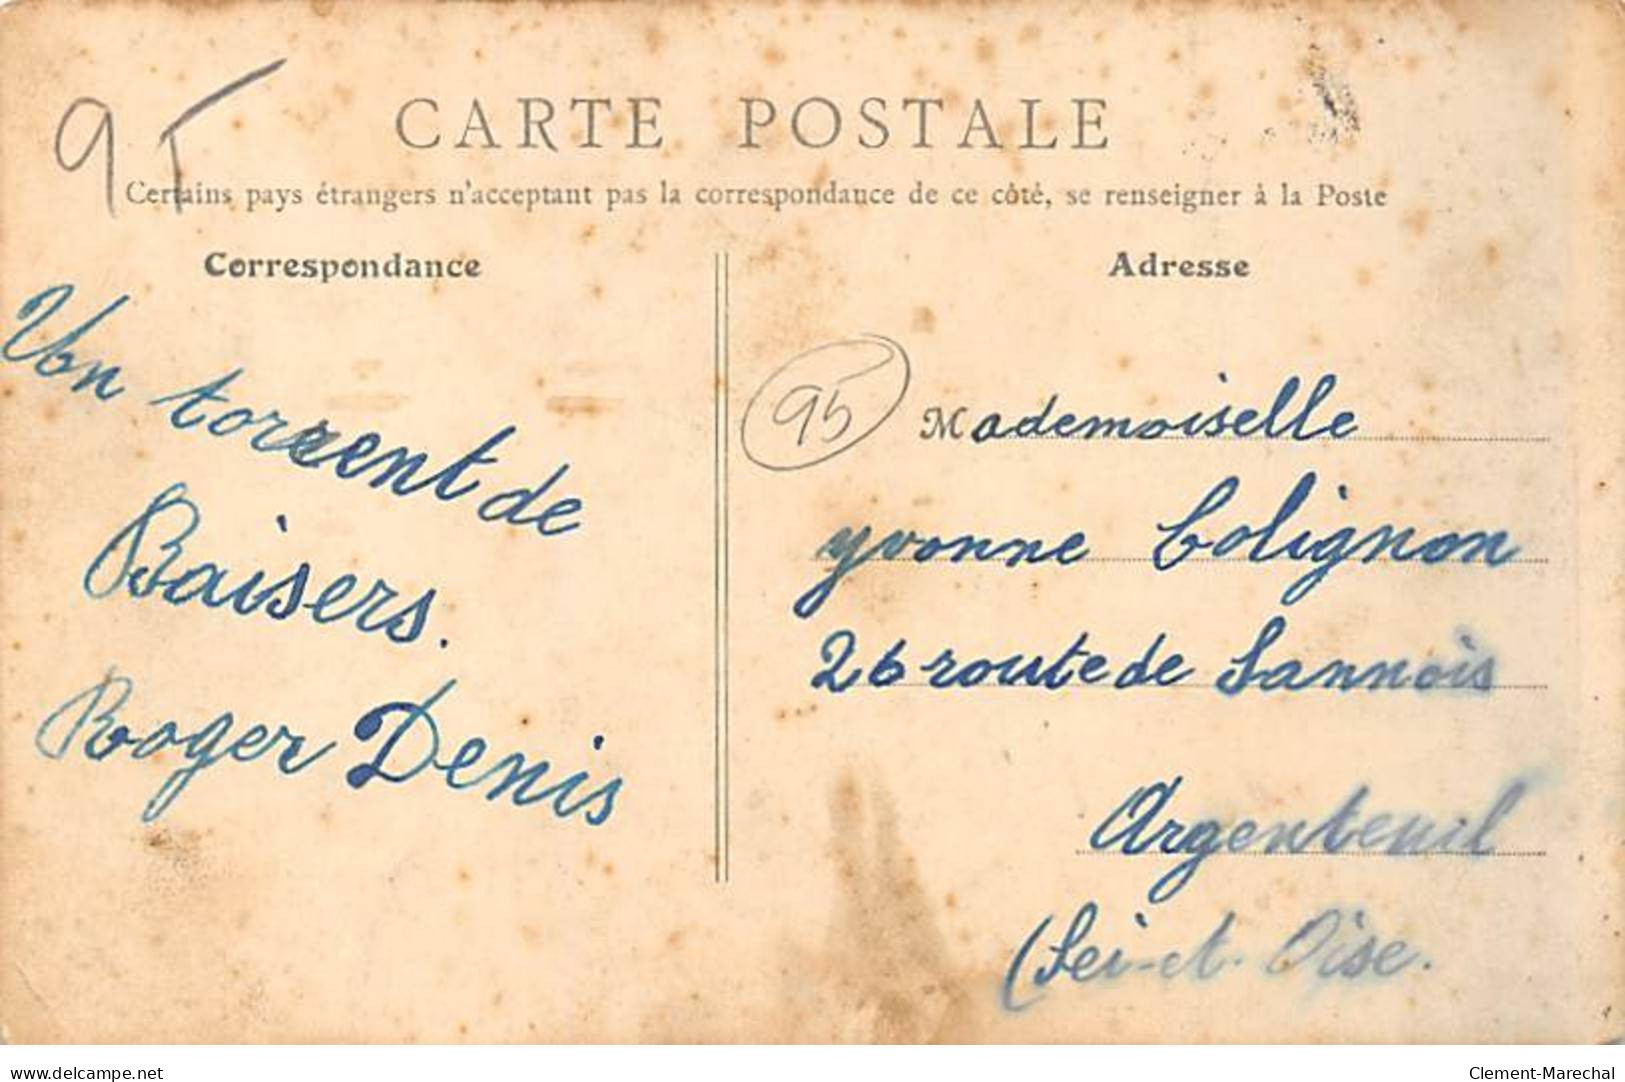 95
CARTE POSTALE
Certains pays étrangers n'acceptant pas la correspondance de ce côté, se renseigner à la Poste
Correspondance
Un torrent de
Baisers.
Roger Denis
Adresse
95
Mademoiselle
yvonne Colignon
26 route de Sannois
Argenteuil
(Sei-et-Oise.
delcampe.net
Clement-Marechal